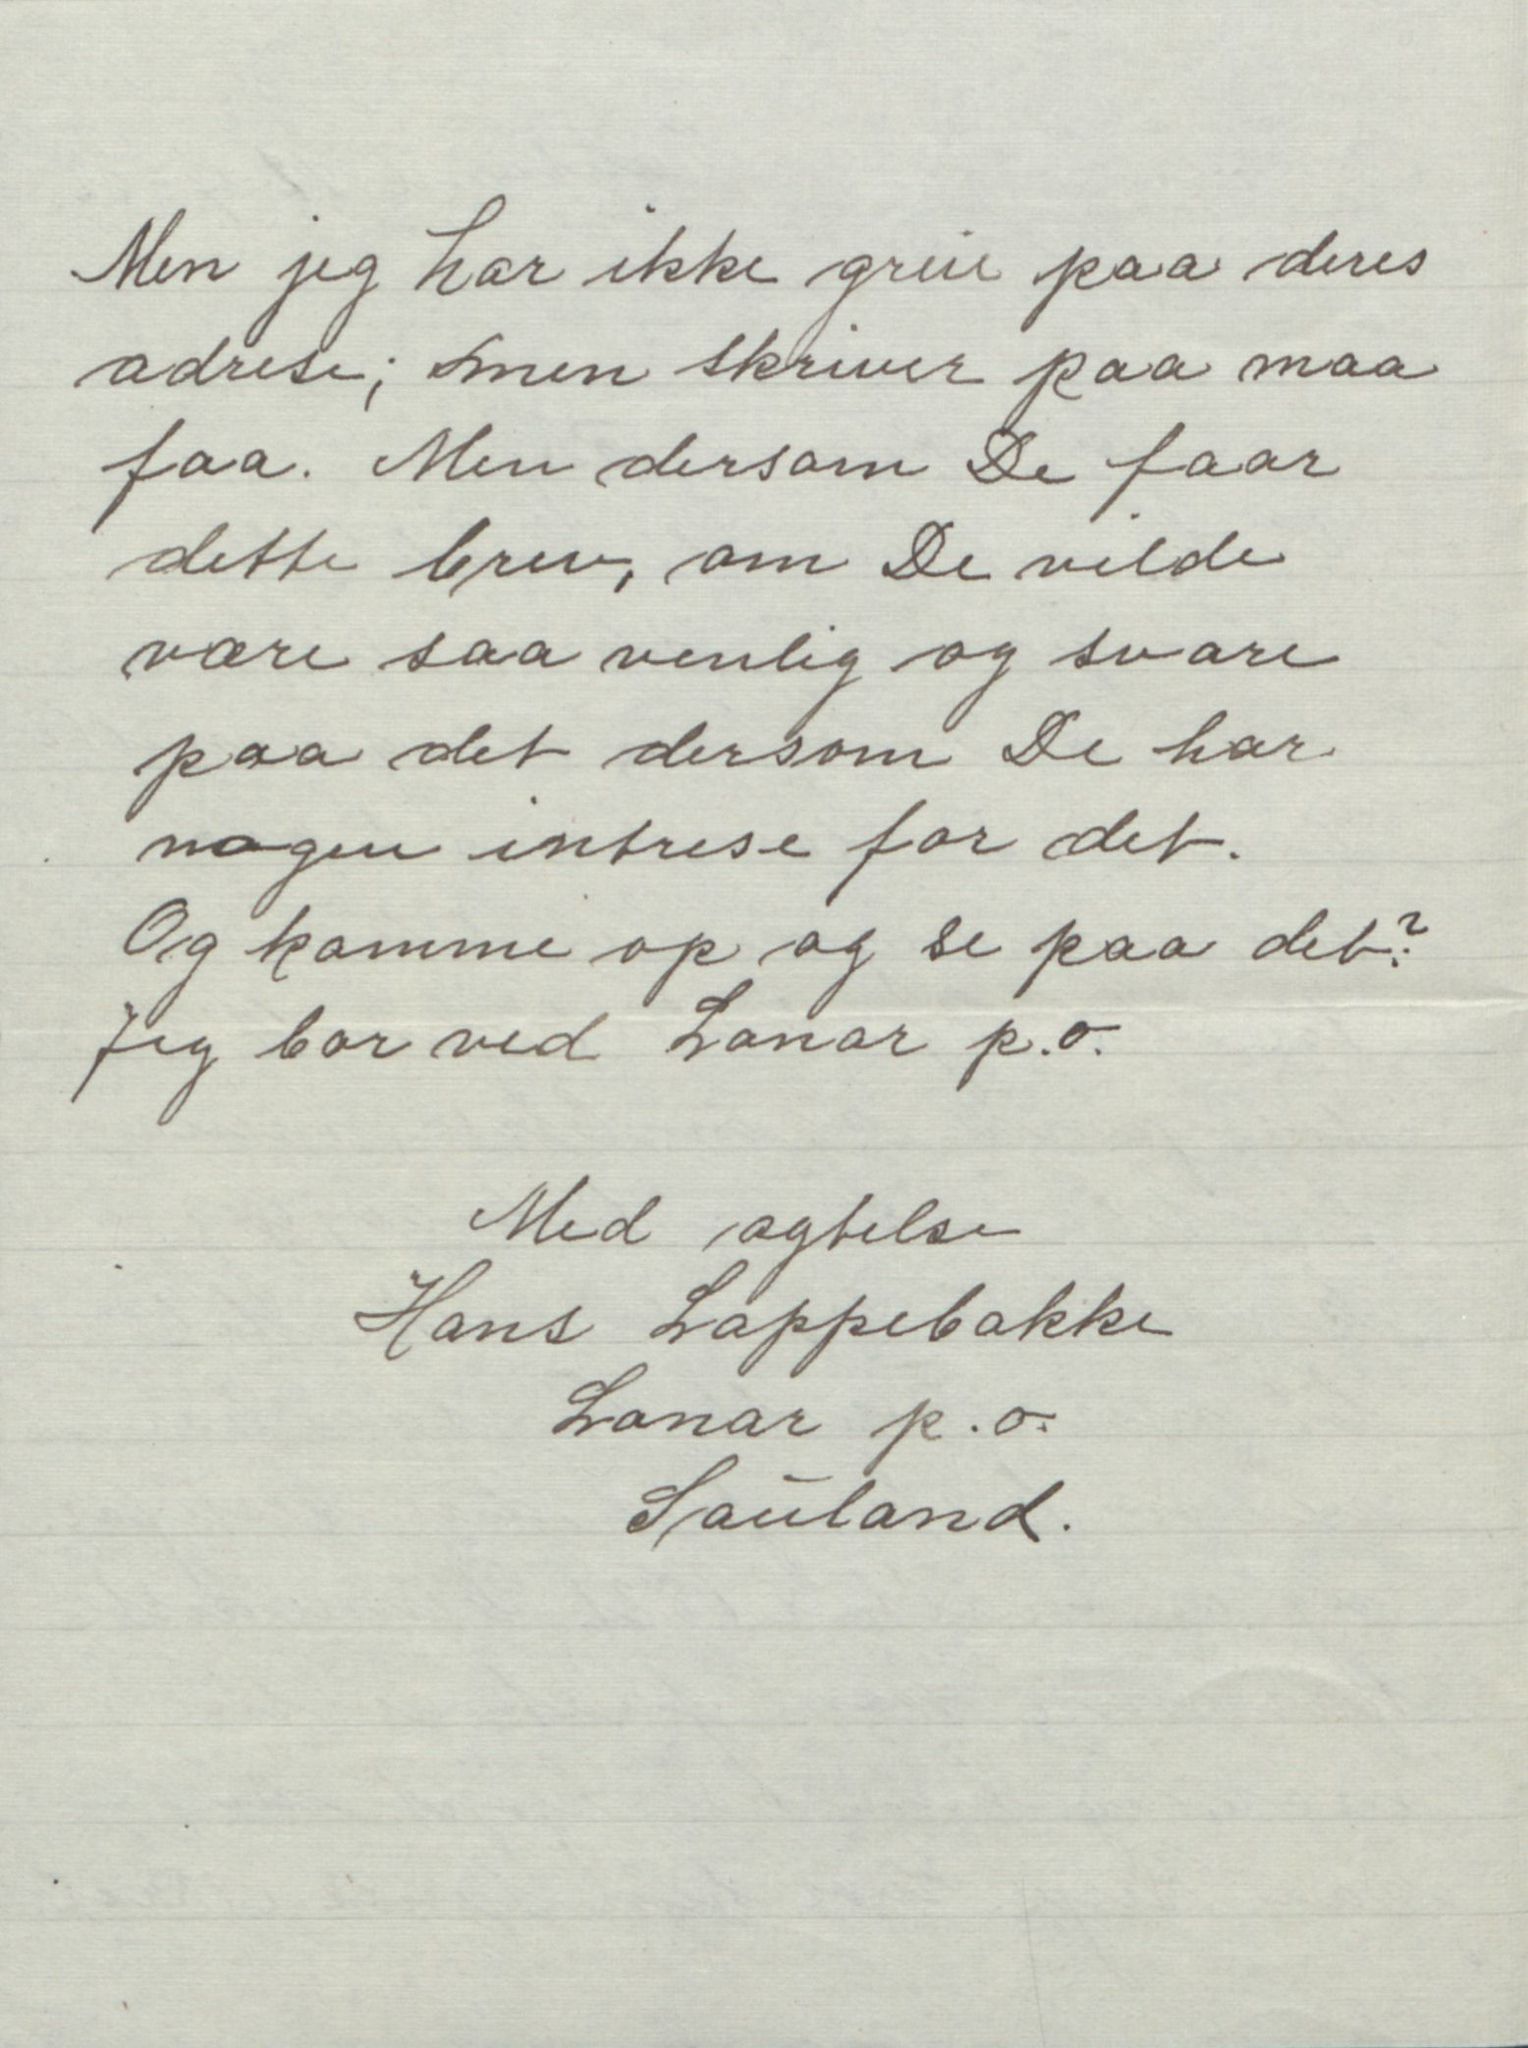 Men jeg har ikke greie paa deres
adrese; men skriver paa maa
faa. Men dersom De faar
dette brev, om De vilde
være saa venlig og svare
paa det dersom De har
nogen intrese for det.
Og komme op og se paa det?
Jeg bor ved Lonar p.o.
Med agtelse
Hans Loppebakke
Lonar p.o.
Sauland.